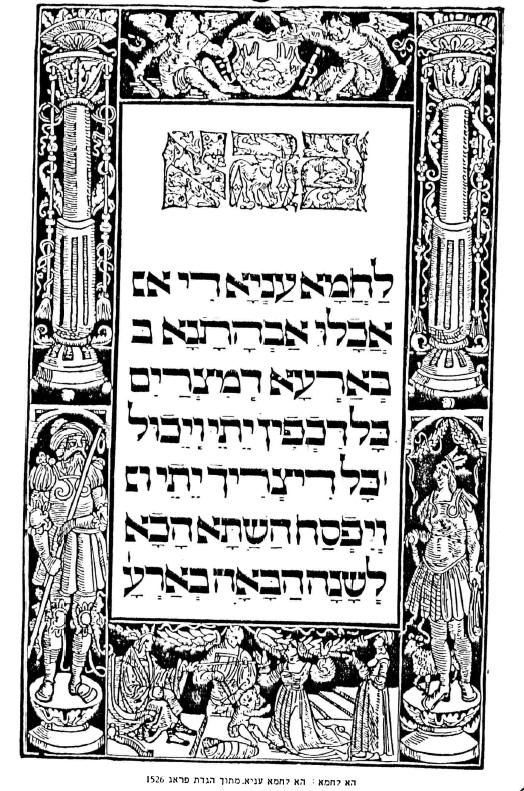 כהא
לַחְמָא עַנְיָא דִי אכ
אֲכָלוּ אַבְהָתָנָא ב
בְּאַרְעָא דְמִצְרַיִם
כָּל דִכְפִין יֵתֵי וְיֵכוֹל
כָּל דִיצְרִיךְ יֵתֵי וי
וְיִפְסַח הַשַׁתָּא הָכָא
לְשָׁנָה הַבָּאָה בְאַרְעָ
הא לחמא : הא לחמא עניא. מתוך הגדת פראג 1526